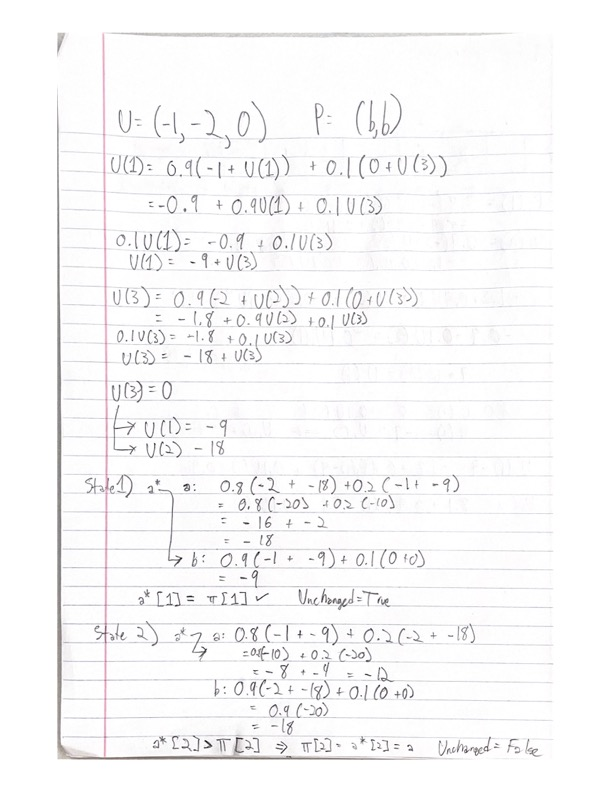 U= (-1, -2, 0) P= (b,b)
U(1)= 0.9(-1 + U(1)) + 0.1(0+U(3))
=-0.9 + 0.9U(1) + 0.1U(3)
0.1U(1)= -0.9 + 0.1U(3)
U(1)= -9+U(3)
U(3)= 0.9(-2 + U(2)) + 0.1(0+U(3))
= -1.8 + 0.9U(2) + 0.1U(3)
0.1U(3)= -1.8 + 0.1U(3)
U(3)= -18 + U(3)
U(3)=0
→ U(1)= -9
→ U(2) -18
State 1) a* a: 0.8(-2 + -18) +0.2(-1+ -9)
= 0.8(-20) +0.2(-10)
= -16 + -2
= -18
→ b: 0.9(-1 + -9)+ 0.1(0+0)
= -9
a*[1]= π[1] ✓ Unchanged=True
State 2) a* → a: 0.8(-1+-9) + 0.2(-2 + -18)
=0.8(-10) +0.2(-20)
= -8 + -4 = -12
b: 0.9(-2+-18)+0.1(0+0)
= 0.9(-20)
= -18
a*[2]>π[2] ⇒ π[2]= a*[2]= a Unchanged= False